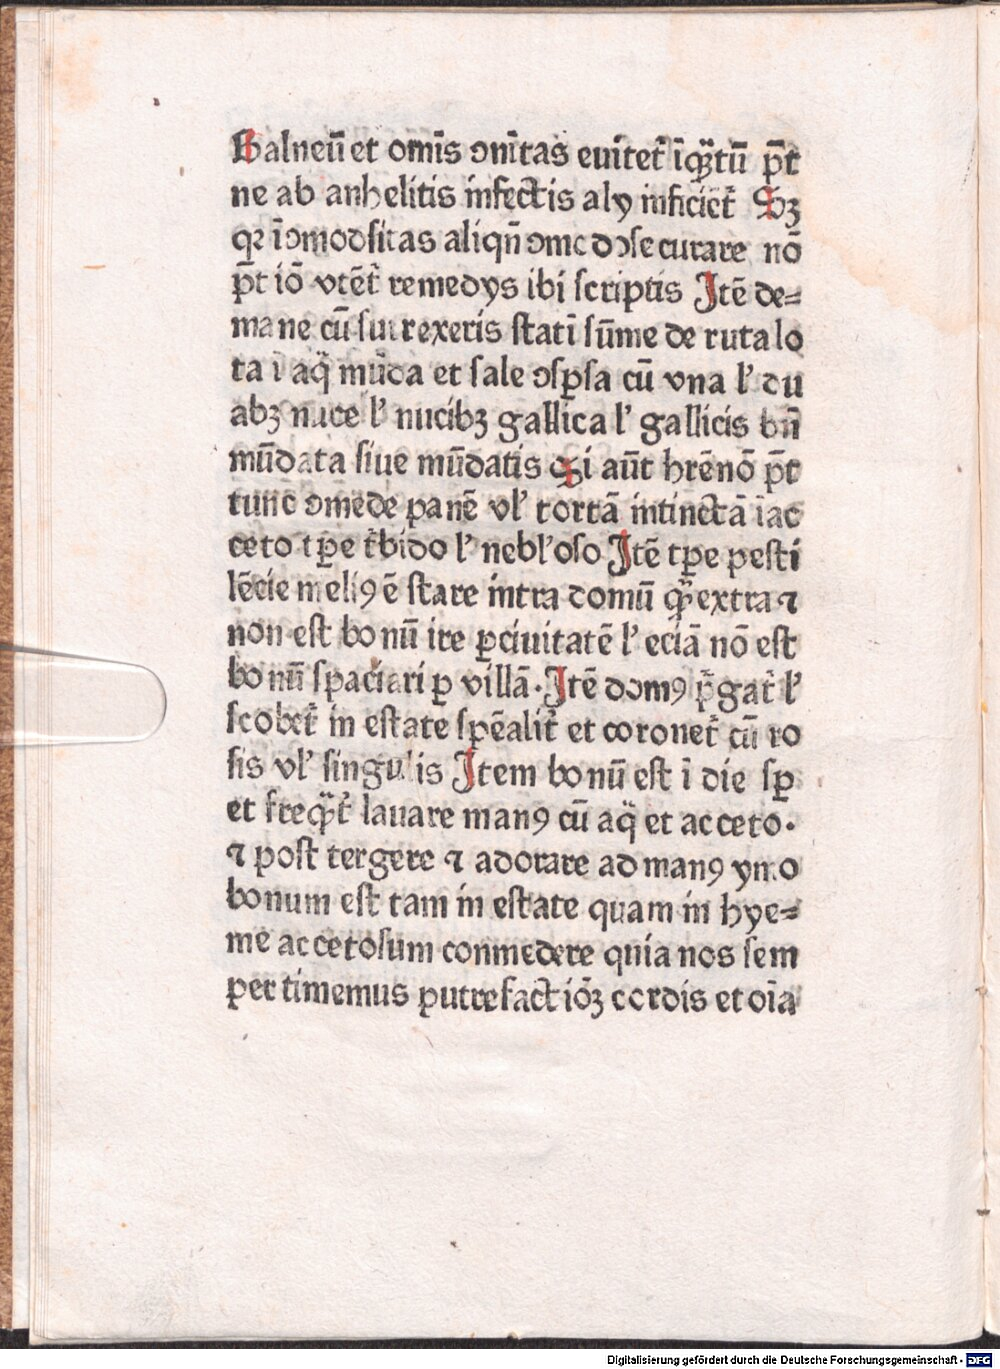 Balneū et omīs ꝯnītas euitet᷑ ī quātū pn̄t
ne ab anhelitis infectis aly inficiēt᷑ Sꝫ
qꝛ īꝯmodsitas aliqn̄ ꝯmo dose curare nō
pn̄t iō vtēt᷑ remedys ibi scriptis Jtē de⸗
mane cū surrexeris statī sūme de ruta lo
ta ī aq̄ mūda et sale ꝯspsa cū vna lʼ du
abꝫ nuce lʼ nucibꝫ gallica lʼ gallicis bn̄
mūdata siue mūdatis Qi aūt hrē nō pn̄t
tunc ꝯmede panē vlʼ tortā intinctā ī ac
ceto tꝑe t᷑bido lʼ neblʼoso Jtē tꝑe pesti
lēcie meliꝯ ē stare intra domū qꝫ̄ extra ⁊
non est bonū ire ꝑ ciuitatē lʼ eciā nō est
bonū spaciari ꝑ villā· Jtē domꝯ p̄gat᷑ lʼ
scobet᷑ in estate spēalit᷑ et coronet᷑ cū ro
sis vlʼ singulis Jtem bonū est ī die sꝑ
et freqn̄t᷑ lauare manꝯ cū aq̄ et acceto·
⁊ post tergere ⁊ adorare ad manꝯ ymo
bonum est tam in estate quam in hye⸗
me accetosum conmedere quia nos sem
per timemus putrefactiōꝫ cordis et oīa
Digitalisierung gefördert durch die Deutsche Forschungsgemeinschaft - DFG